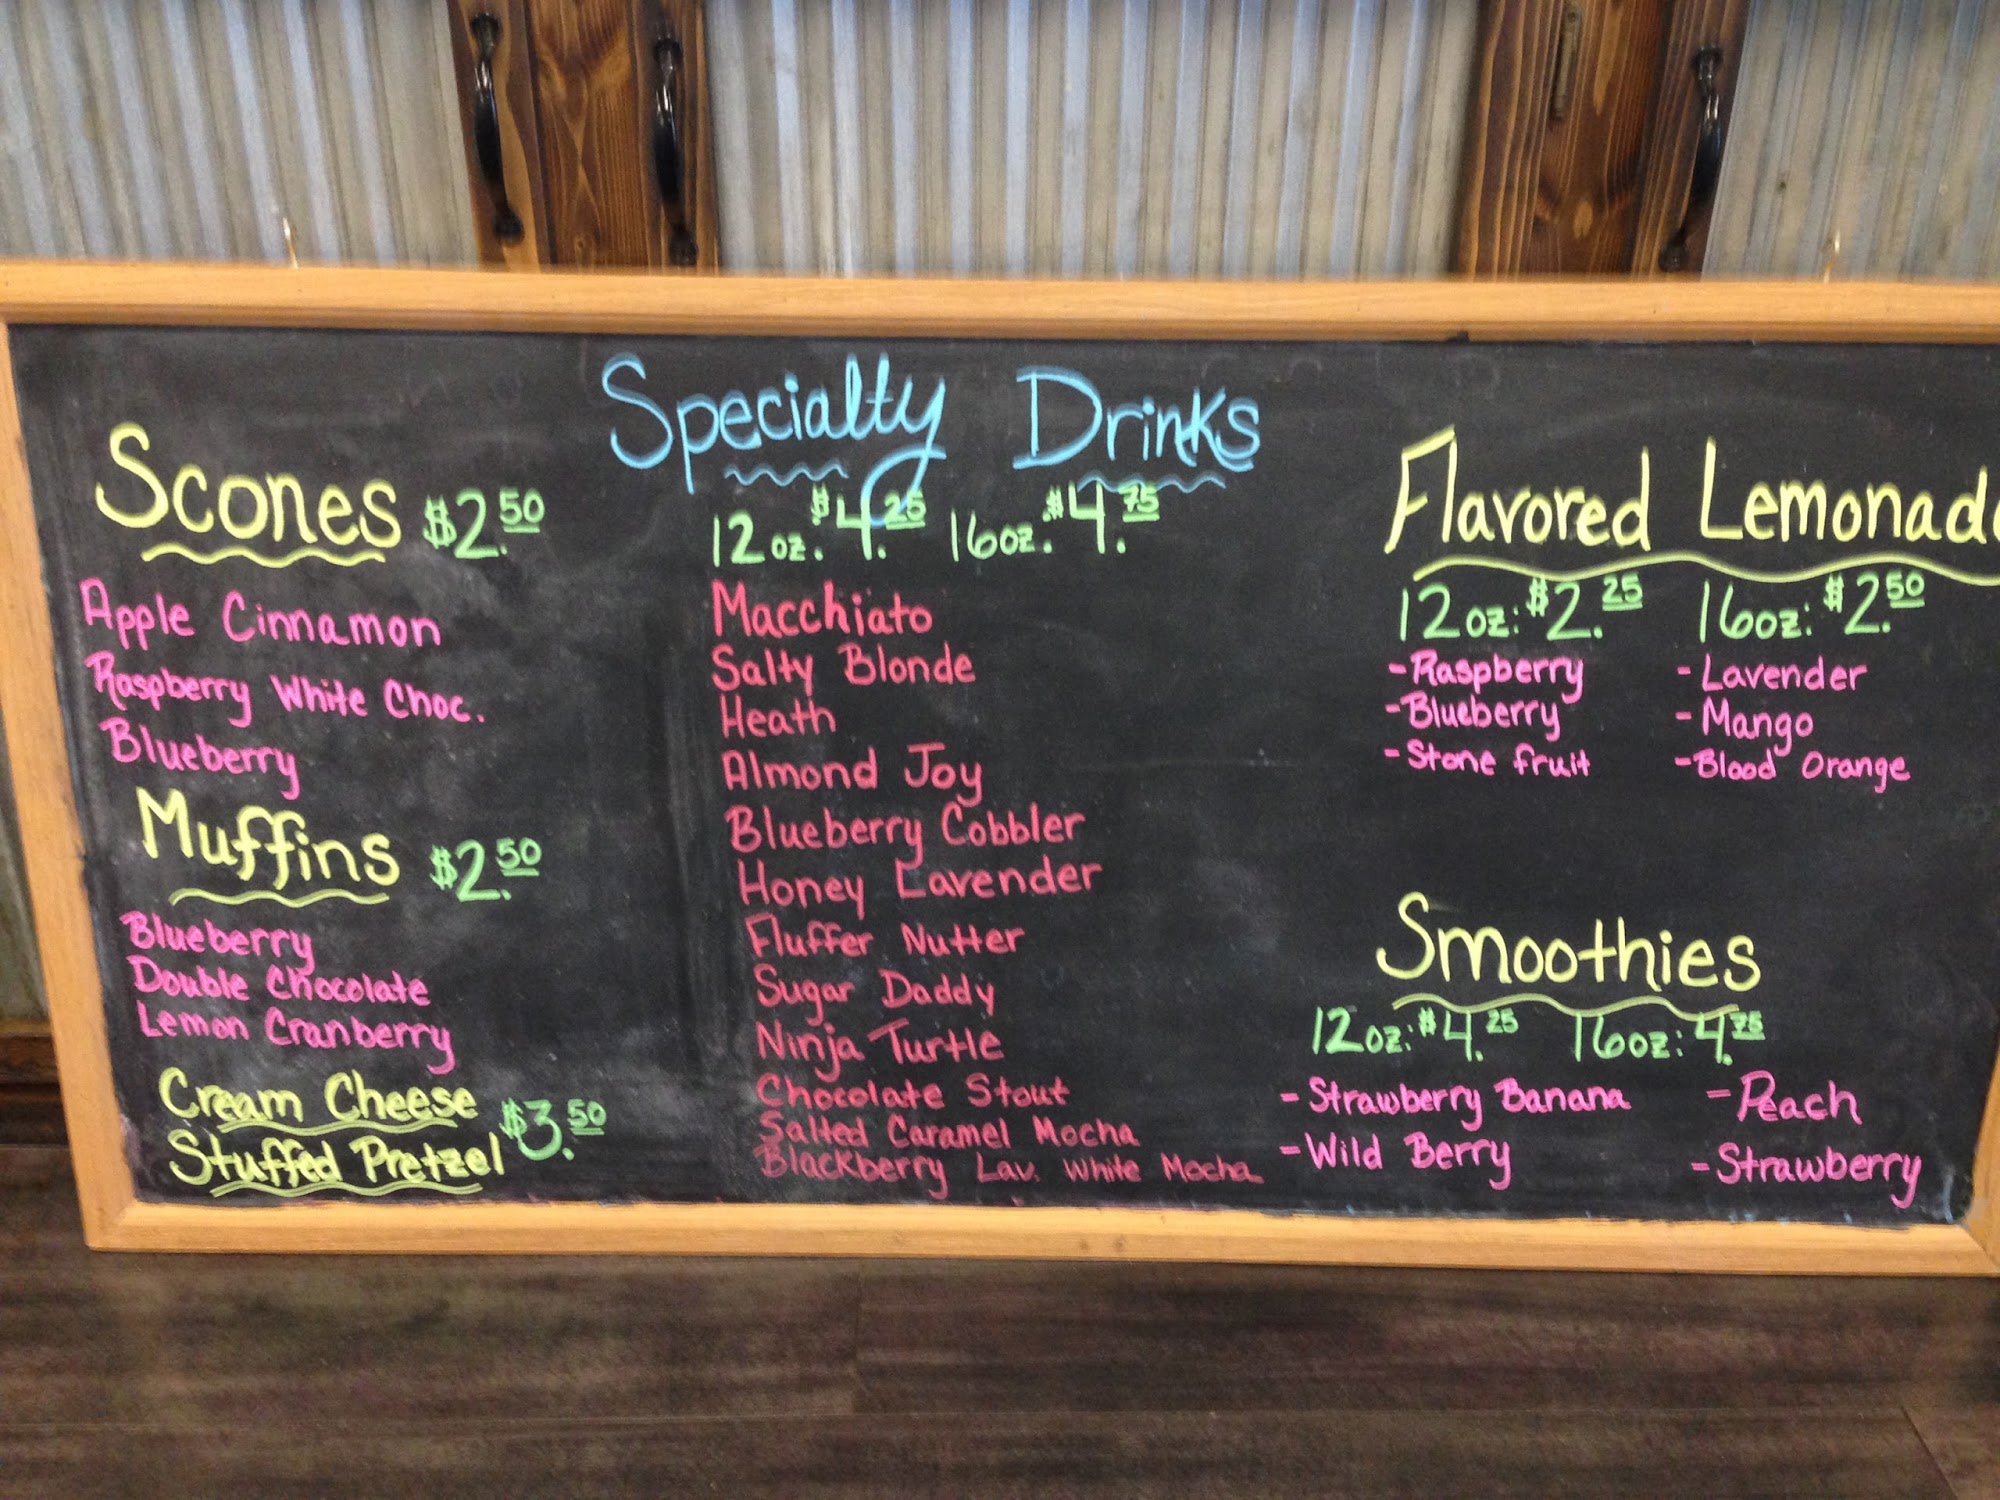 Scones $2.50
Apple Cinnamon
Raspberry White Choc.
Blueberry
Muffins $2.50
Blueberry
Double Chocolate
Lemon Cranberry
Cream Cheese
Stuffed Pretzel $3.50
Specialty Drinks
12oz. $4.25 16oz. $4.75
Macchiato
Salty Blonde
Heath
Almond Joy
Blueberry Cobbler
Honey Lavender
Fluffer Nutter
Sugar Daddy
Ninja Turtle
Chocolate Stout
Salted Caramel Mocha
Blackberry Lav. White Mocha
Flavored Lemonade
12oz: $2.25 16oz: $2.50
-Raspberry -Lavender
-Blueberry -Mango
-Stone fruit -Blood Orange
Smoothies
12oz: $4.25 16oz: 4.75
-Strawberry Banana -Peach
-Wild Berry -Strawberry